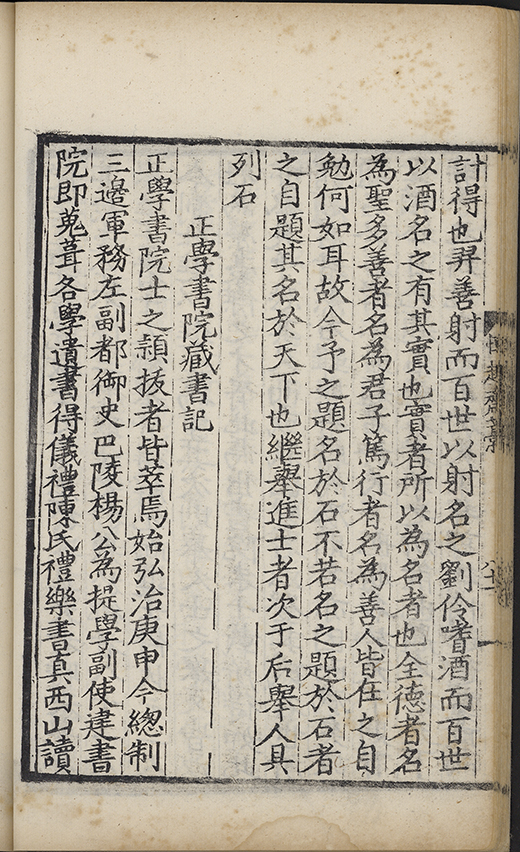 計得也羿善射而百世以射名之劉伶嗜酒而百世
以酒名之有其實也實者所以為名者也全德者名
為聖多善者名為君子篤行者名為善人皆在之自
勉何如耳故今予之題名於石不若名之題於石者
之自題其名於天下也繼舉進士者次于后舉人具
列石
正學書院藏書記
正學書院士之頴拔者皆萃焉始弘治庚申今總制
三邊軍務左副都御史巴陵楊公為提學副使建書
院即蒐葺各學遺書得儀禮陳氏禮樂書真西山讀